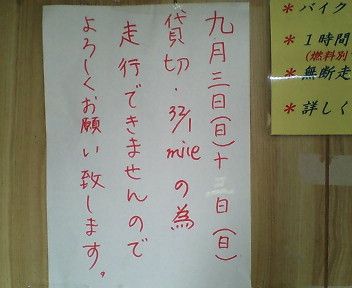 九月三日(日)十日(日)
貸切・32/1 mileの為
走行できませんので
よろしくお願い致します。
*バイク
*1時間
(燃料別
*無断走
*詳しく